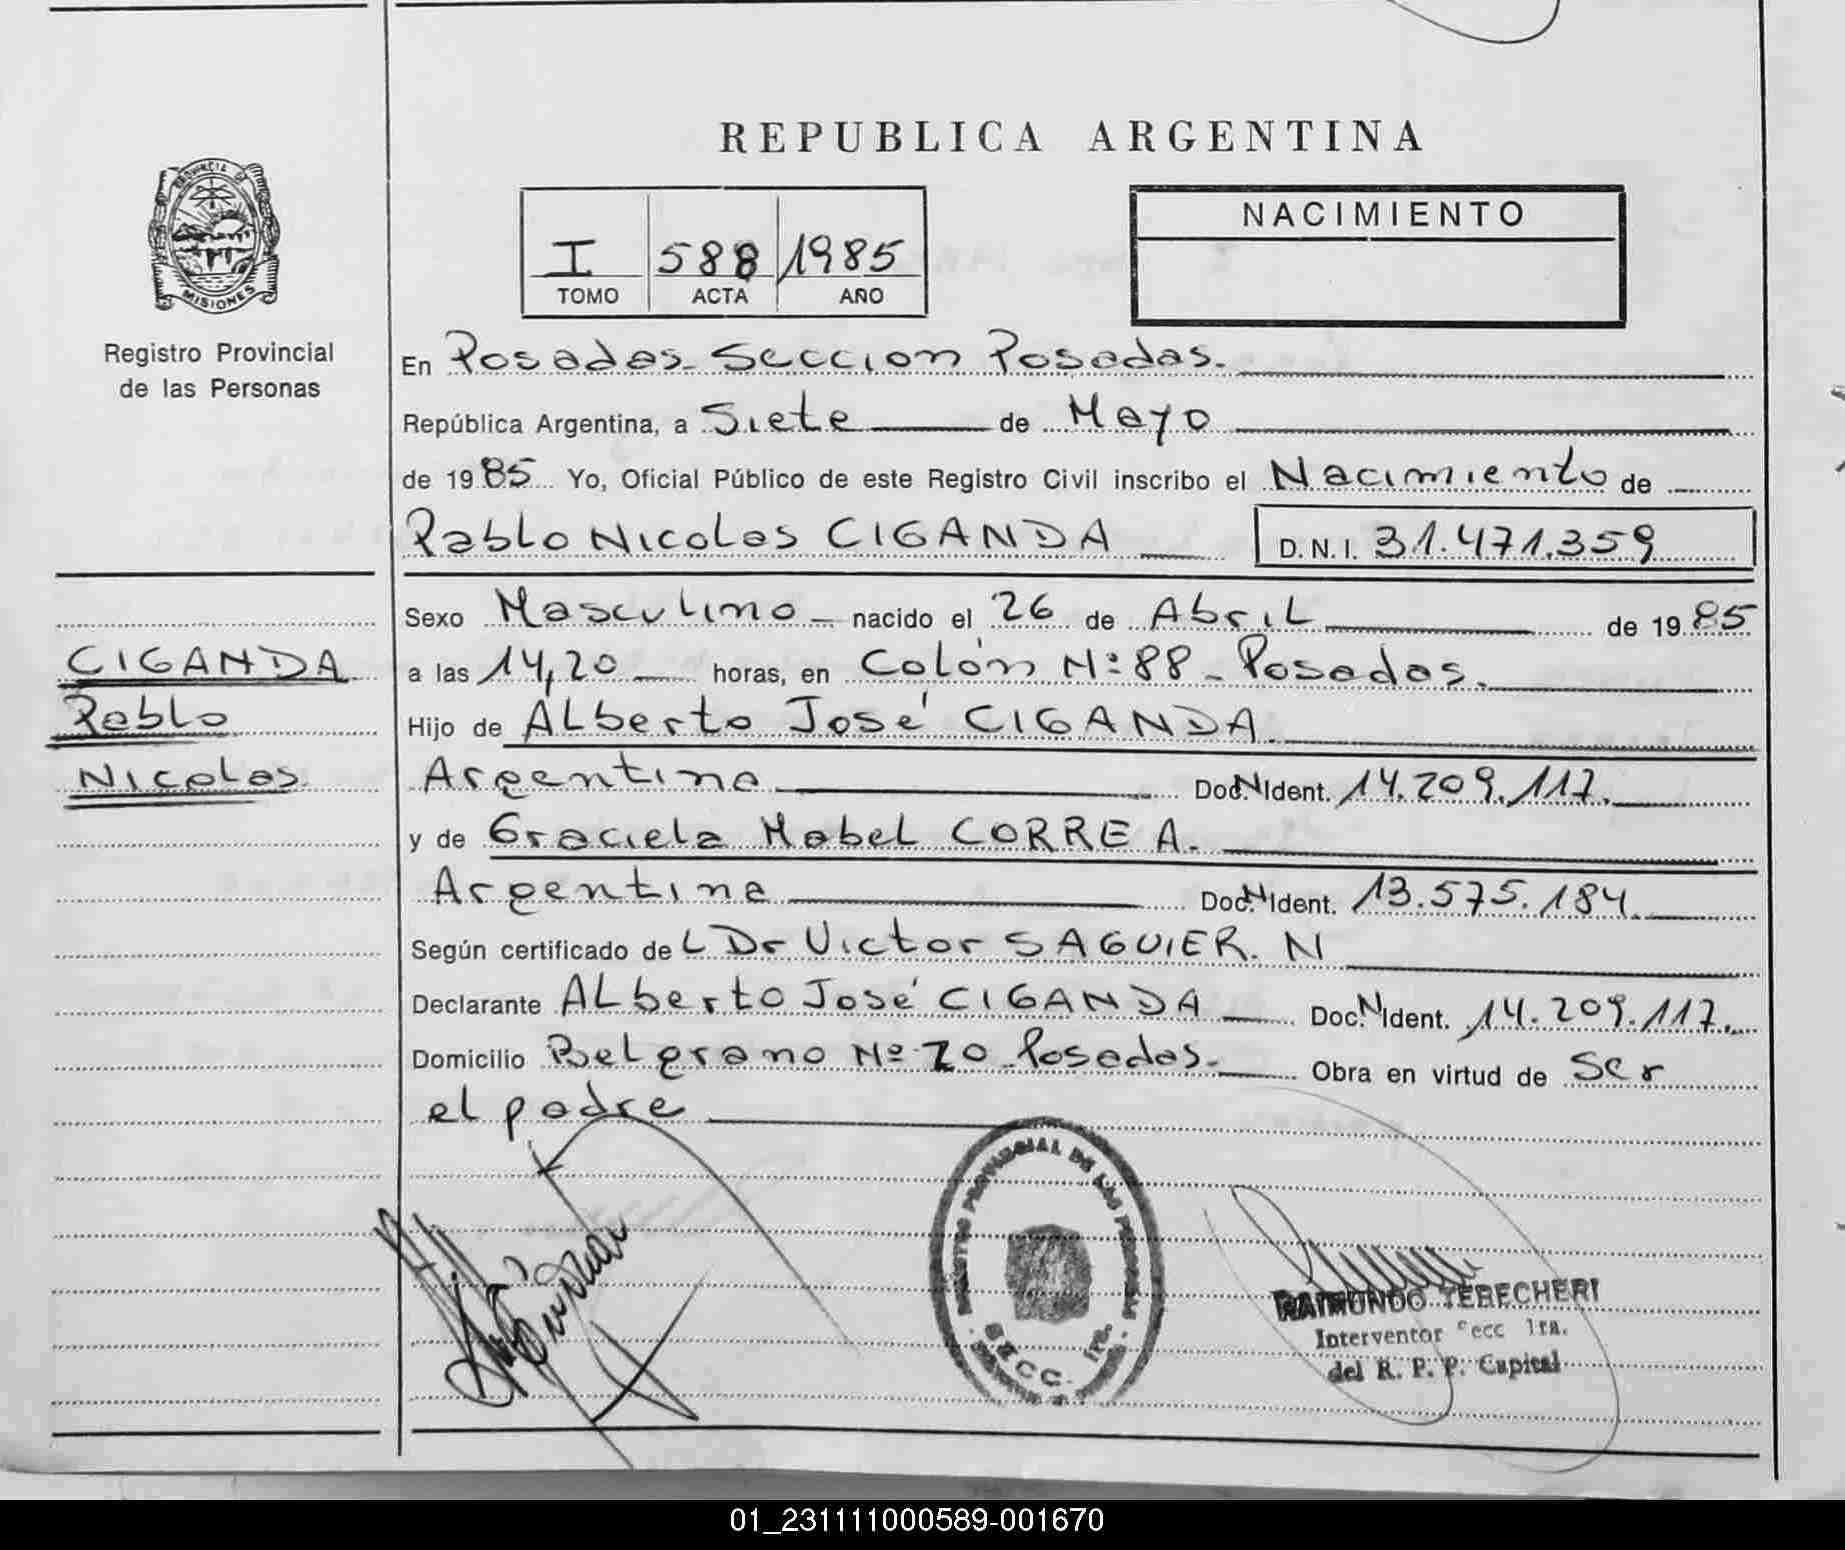 REPUBLICA ARGENTINA
PROVINCIA DE
MISIONES
Registro Provincial
de las Personas
I 588 1985
TOMO ACTA AÑO
NACIMIENTO
En Posadas. Seccion Posadas.
República Argentina, a Siete de Mayo
de 1985 Yo, Oficial Público de este Registro Civil inscribo el Nacimiento de
Pablo Nicolas CIGANDA D.N.I. 31.471.359
Sexo Masculino nacido el 26 de Abril de 1985
a las 14,20 horas, en Colón Nº 88 - Posadas.
Hijo de Alberto José CIGANDA
Argentino Doc. N Ident. 14.209.117.
y de Graciela Mabel CORREA.
Argentina Doc. N Ident. 13.575.184.
Según certificado de L Dr Victor SAGUIER. N
Declarante Alberto José CIGANDA Doc. N Ident. 14.209.117.
Domicilio Belgrano Nº 70 Posadas. Obra en virtud de Ser
el padre
CIGANDA
Pablo
Nicolas.
REGISTRO PROVINCIAL DE LAS PERSONAS
SECC. 1ra.
RAIMUNDO TEBECHERI
Interventor Secc 1ra.
del R. P. P. Capital
01_231111000589-001670